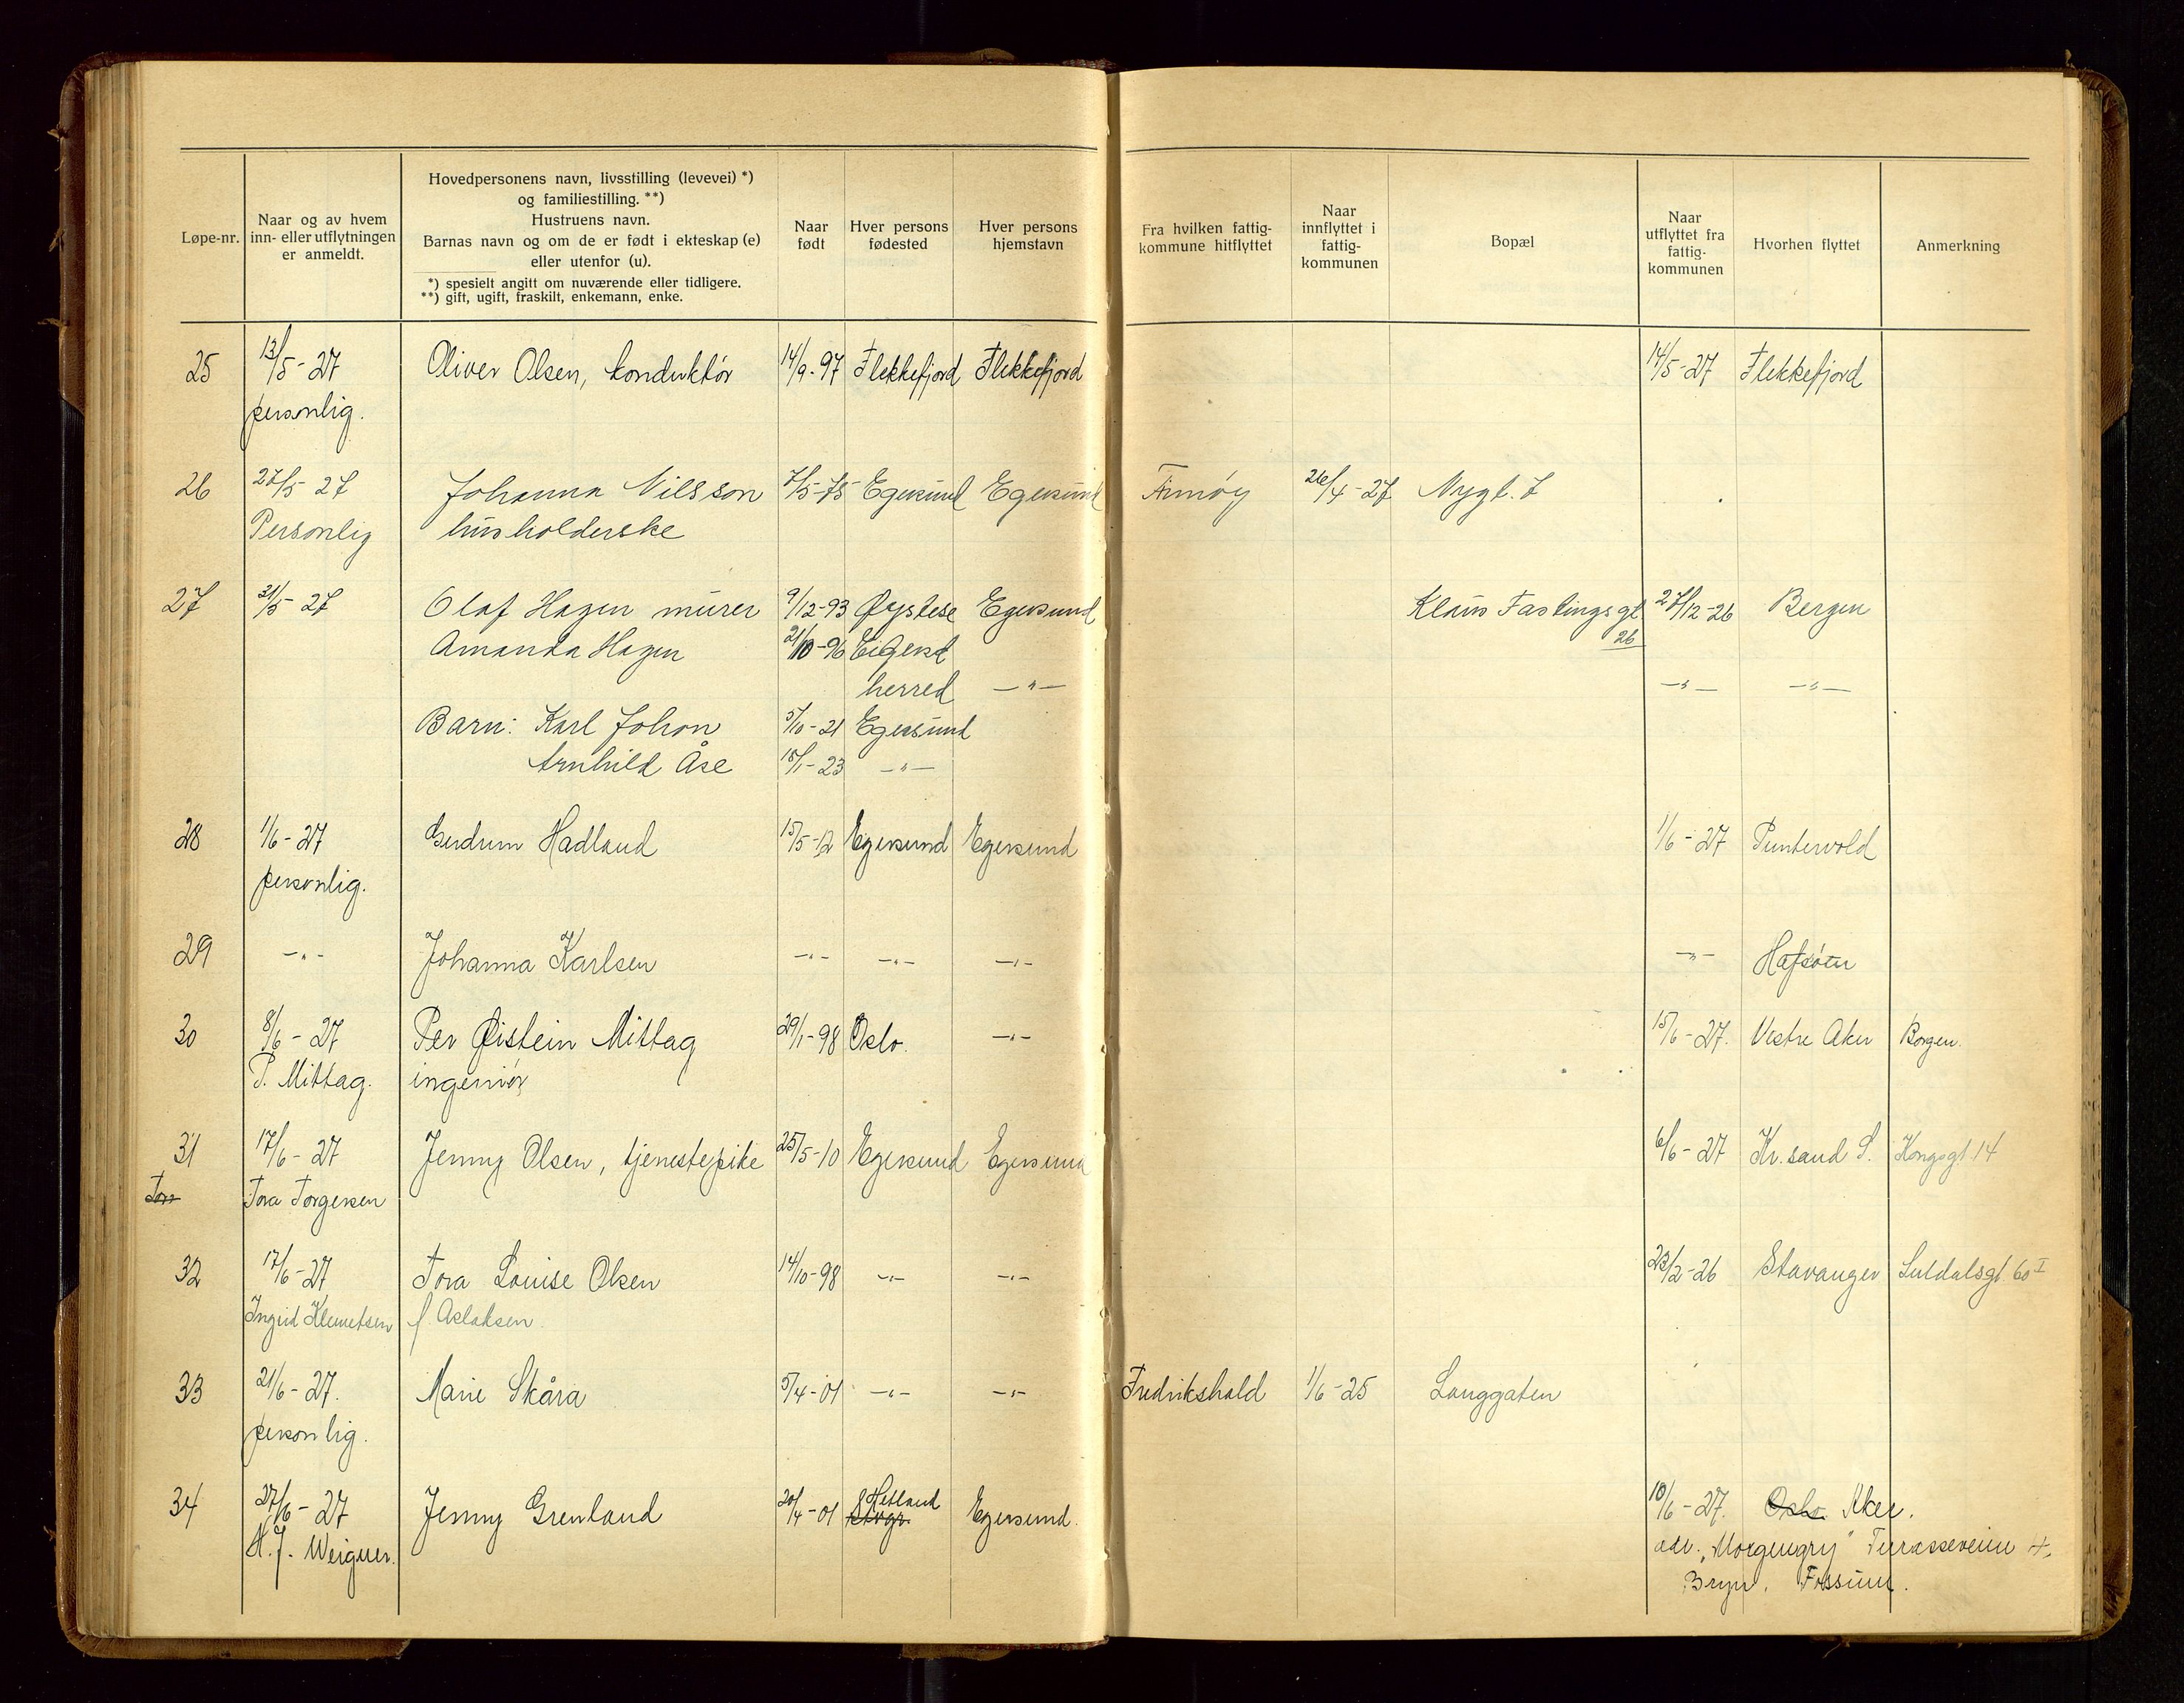 Løpe-nr.
Naar og av hvem
inn- eller utflytningen
er anmeldt.
Hovedpersonens navn, livsstilling (levevei) *)
og familiestilling. **)
Hustruens navn.
Barnas navn og om de er født i ekteskap (e)
eller utenfor (u).
*) spesielt angitt om nuværende eller tidligere.
**) gift, ugift, fraskilt, enkemann, enke.
Naar
født
Hver persons
fødested
Hver persons
hjemstavn
Fra hvilken fattig-
kommune hitflyttet
Naar
innflyttet i
fattig-
kommunen
Bopæl
Naar
utflyttet fra
fattig-
kommunen
Hvorhen flyttet
Anmerkning
25 13/5-27 Oliver Olsen, konduktør 14/9-97 Flekkefjord Flekkefjord 14/5-27 Flekkefjord
personlig.
26 27/5 27 Johanna Nilsson 7/5-75 Egersund Egersund Finnøy 26/4-27 Nygt. 7
Personlig husholderske
27 31/5-27 Olaf Hagen murer 9/12-93 Øystese Egersund Klaus Fastingsgt. 27/12-26 Bergen
Amanda Hagen 21/10-96 Eigersd 26
herred -"- -"- -"-
Barn: Karl Johan 5/10-21 Egersund
Arnhild Åse 18/1-23 -"-
28 1/6-27 Gudrun Hadland 15/5-12 Egersund Egersund 1/6-27 Puntervold
personlig.
29 -"- Johanna Karlsen -"- -"- -"- -"- Hafsøen
30 8/6-27 Per Øistein Mittag 29/1-98 Oslo. -"- 15/6-27. Vestre Aker Borgen.
P. Mittag. ingeniør
31 17/6-27 Jenny Olsen, tjenestepike 25/5-10 Egersund Egersund 6/6-27 Kr.sand S. Kongsgt. 14
Tora Tora Torgersen
32 17/6-27 Tora Louise Olsen 14/10-98 -"- -"- 23/2-26 Stavanger Suldalsgt. 60 I
Ingrid Klemetsen f. Aslaksen.
33 21/6-27. Marie Skåra 5/4-01 -"- -"- Fredrikshald 1/6-25 Langgaten
personlig.
34 27/6-27 Jenny Grenland 20/4-01 Hetland Stvgr. Egersund. 10/6-27. Oslo. Aker.
H.J. Weigner. adr. "Morgengry" Terrasseveien 4,
Bryn. Fossum.